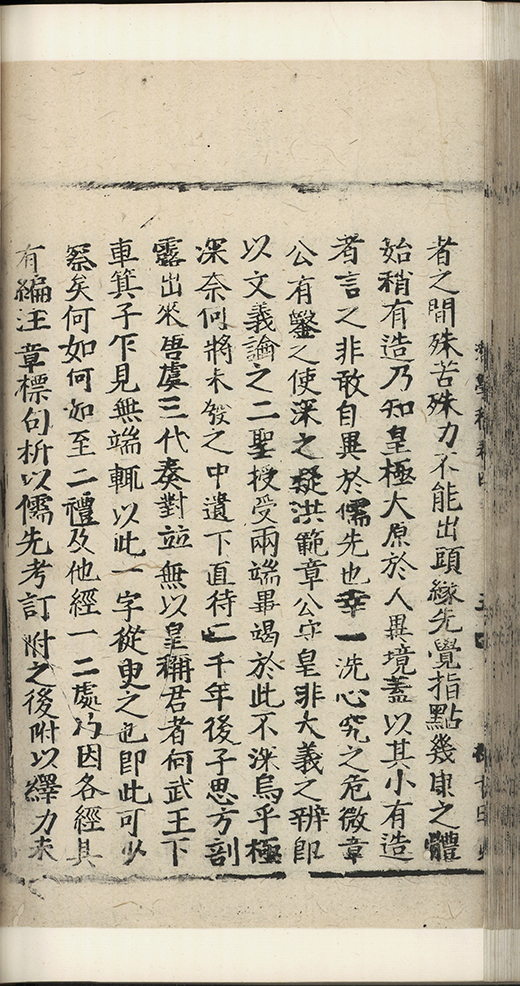 者之間殊苦殊力不能出頭緣先覺指點幾康之體
始稍有造乃知皇極大原於人異境蓋以其小有造
者言之非敢自異於儒先也幸一洗心究之危微章
公有鑿之使深之疑洪範章公守皇非大義之辨即
以文義論之二聖授受兩端畢竭於此不深烏乎極
深奈何將未發之中遺下直待二千年後子思方剖
露出來唐虞三代奏對並無以皇稱君者何武王下
車箕子乍見無端輒以此一字從臾之也即此可以
察矣何如何如至二禮及他經一二處乃因各經具
有編注章標句析以儒先考訂附之後附以繹力未